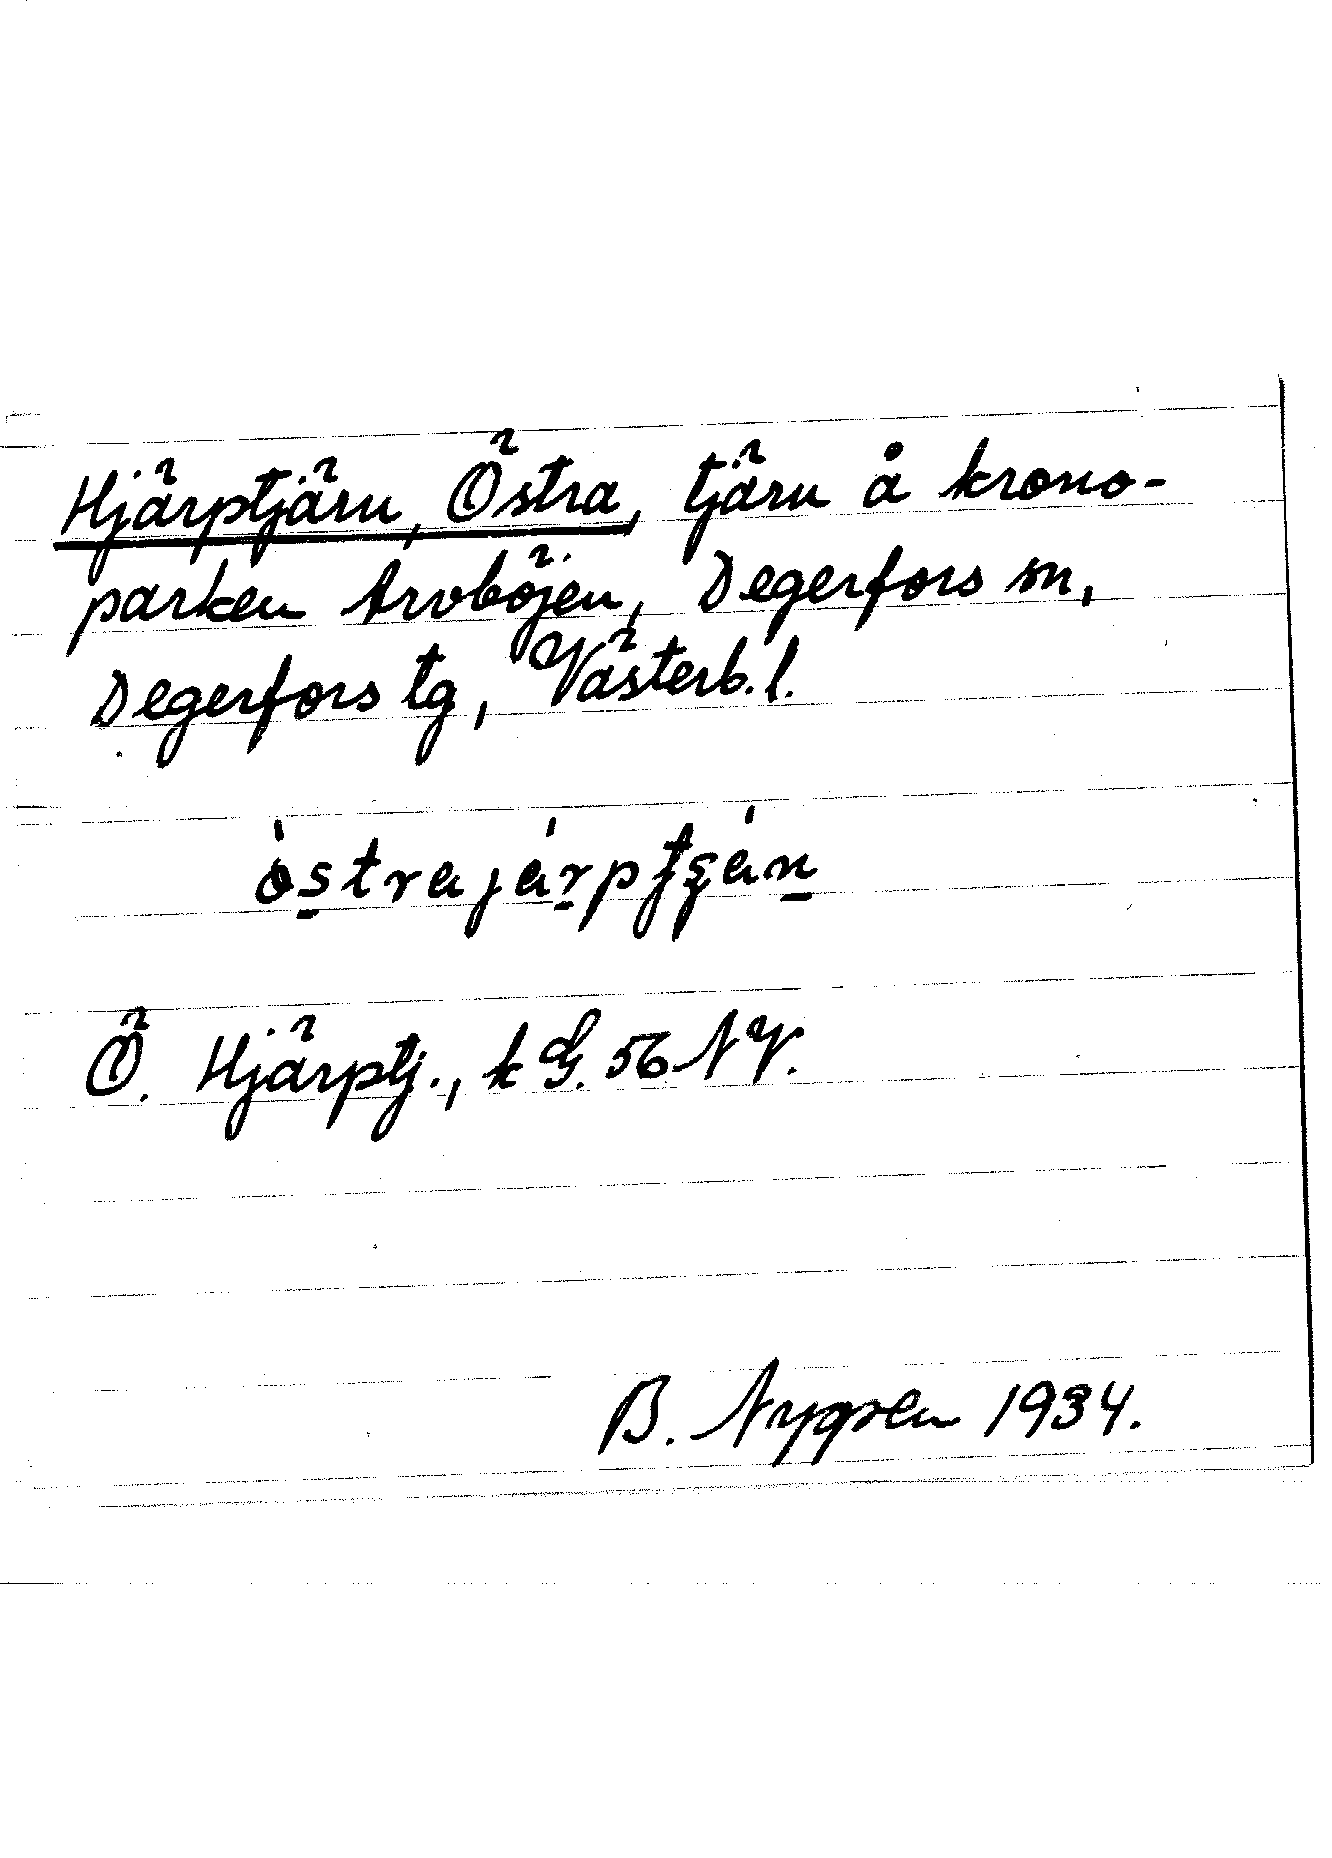 Hjärptjärn, Östra, tjärn å krono-
parken Arvböjen, Degerfors sn,
Degerfors tg, Västerb. l.
östrajärptʂän
Ö. Hjärptj., k G. 56 NV.
B. Nygren 1934.